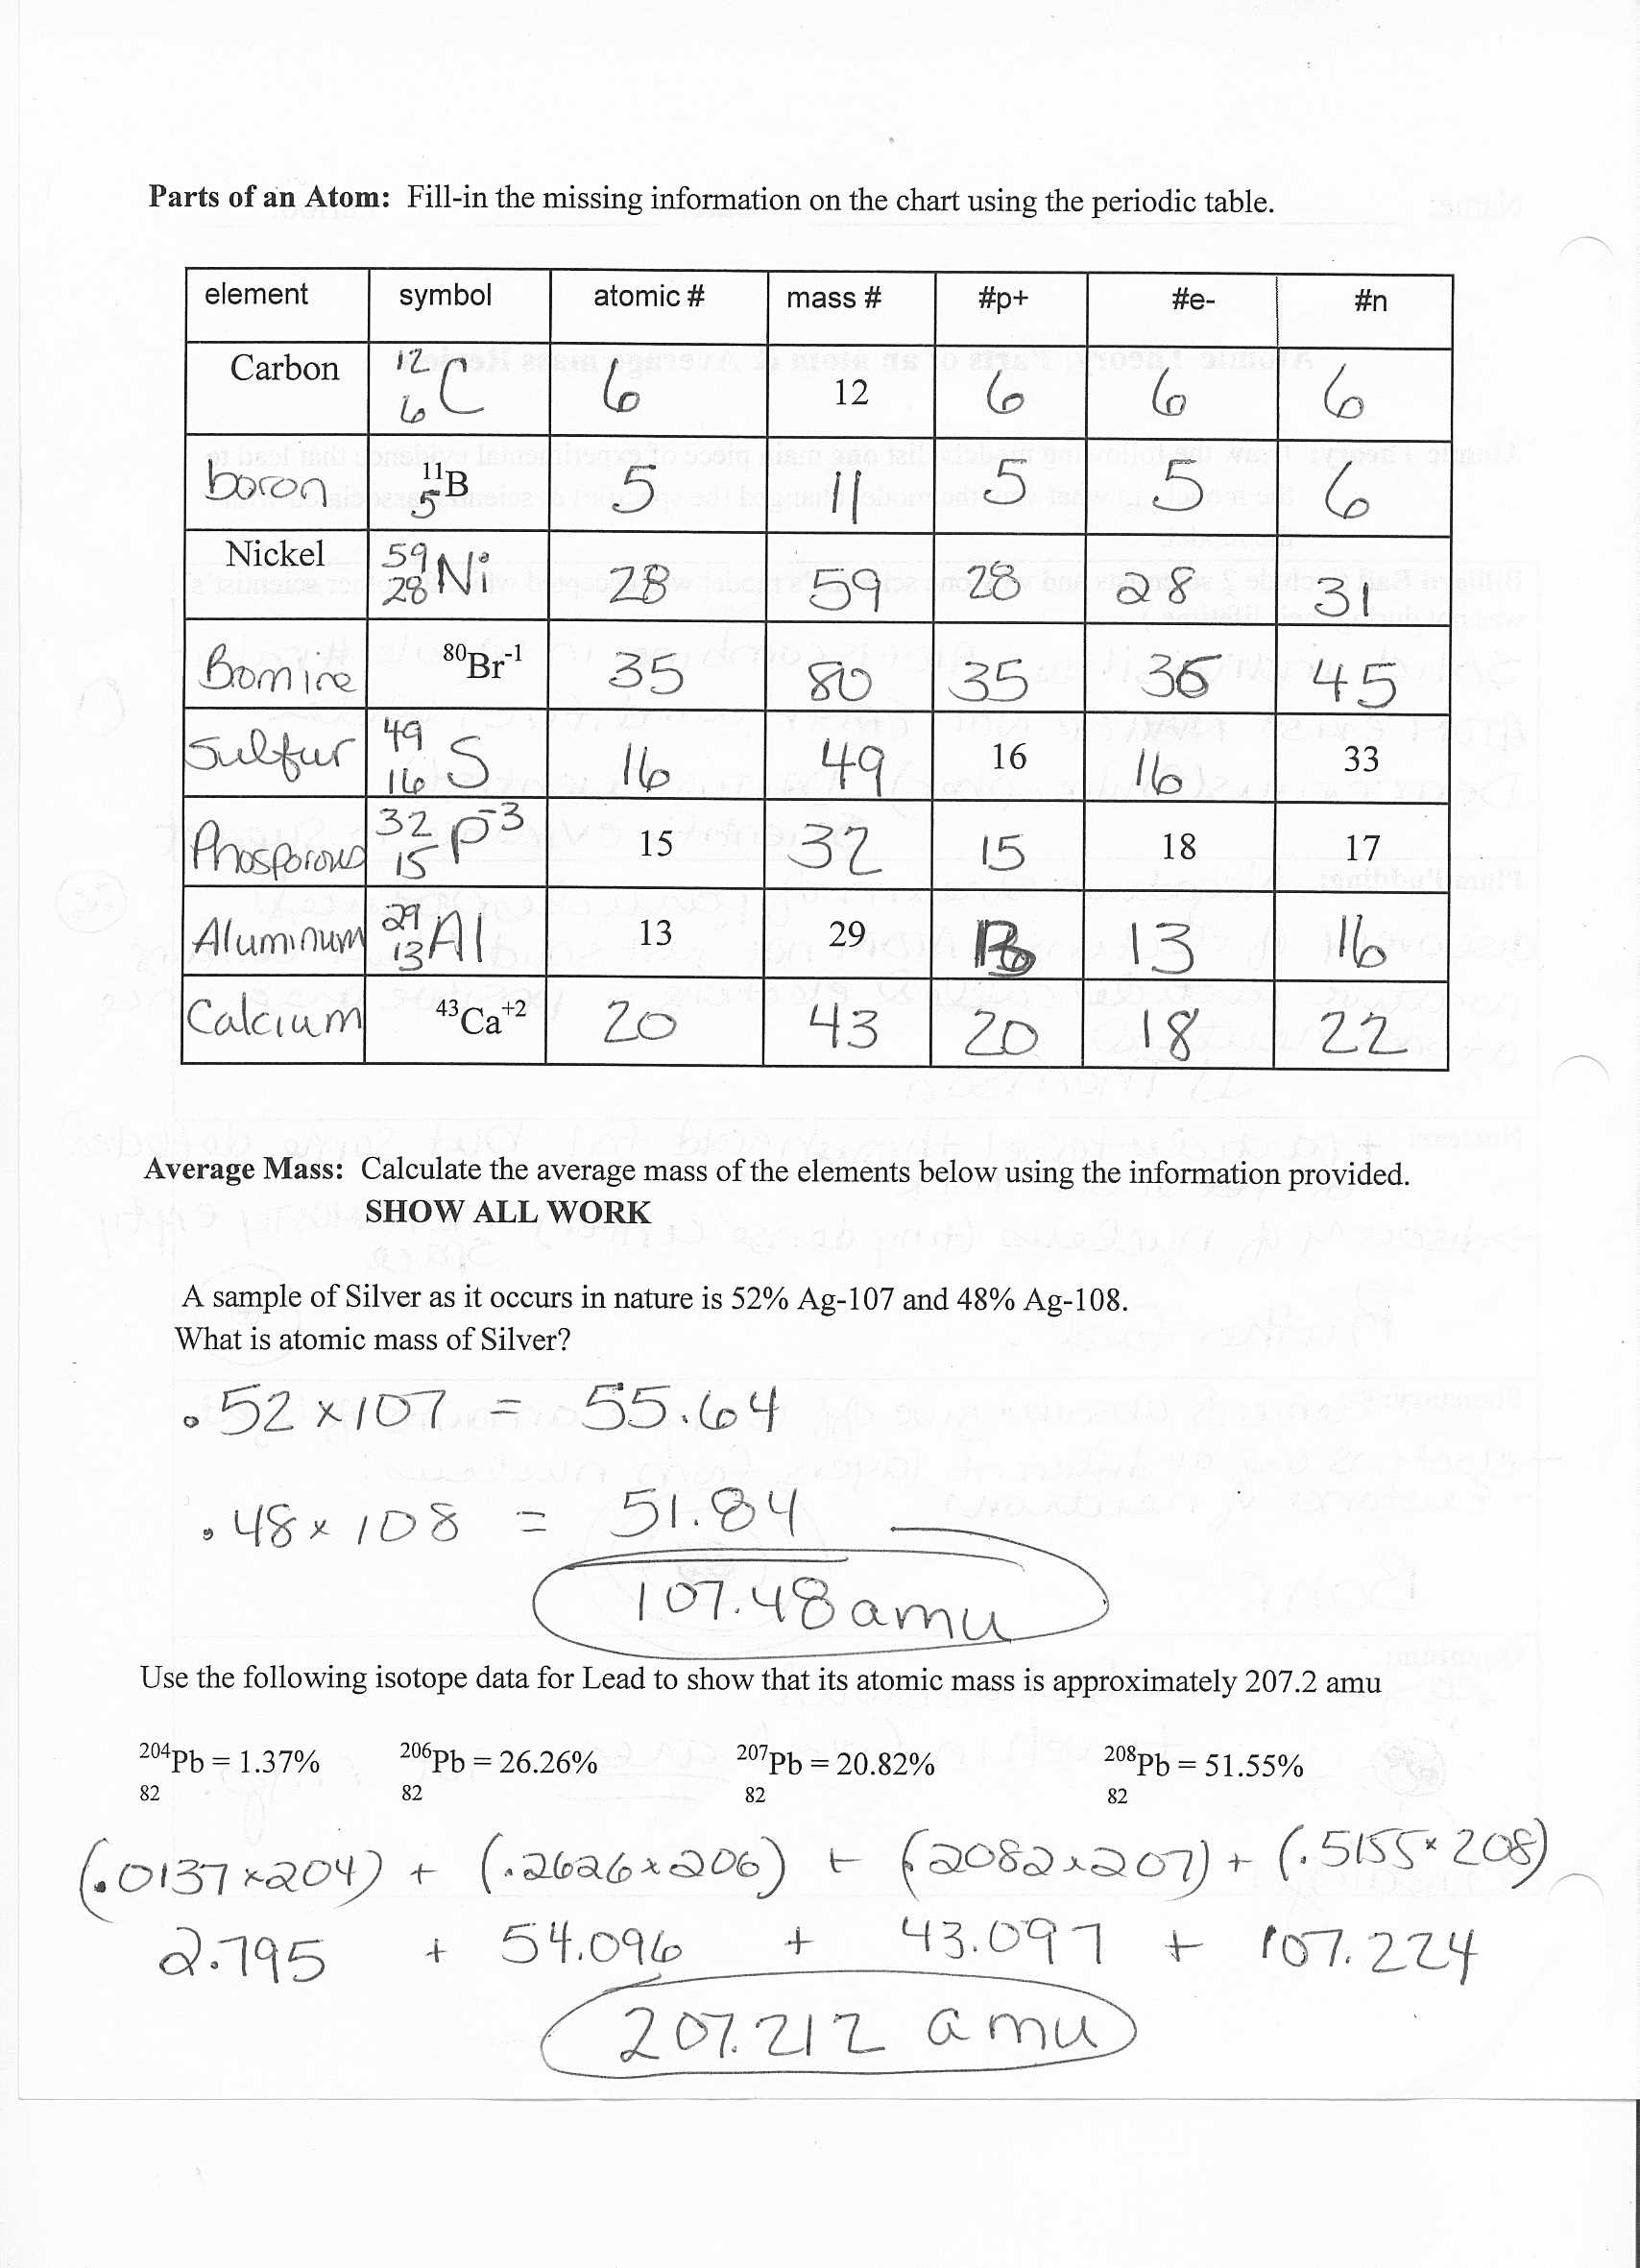 Parts of an Atom: Fill-in the missing information on the chart using the periodic table.
element symbol atomic # mass # #p+ #e- #n
Carbon 12 6 C 6 12 6 6 6
boron 11 5 B 5 11 5 5 6
Nickel 59 28 Ni 28 59 28 28 31
Bromine 80Br-1 35 80 35 36 45
Sulfur 49 16 S 16 49 16 16 33
Phosporous 32 15 P-3 15 32 15 18 17
Aluminum 29 13 Al 13 29 13 13 16
Calcium 43Ca+2 20 43 20 18 22
Average Mass: Calculate the average mass of the elements below using the information provided.
SHOW ALL WORK
A sample of Silver as it occurs in nature is 52% Ag-107 and 48% Ag-108.
What is atomic mass of Silver?
.52 x 107 = 55.64
.48 x 108 = 51.84
107.48 amu
Use the following isotope data for Lead to show that its atomic mass is approximately 207.2 amu
204Pb = 1.37% 206Pb = 26.26% 207Pb = 20.82% 208Pb = 51.55%
82 82 82 82
(.0137 x 204) + (.2626 x 206) + (.2082 x 207) + (.5155 x 208)
2.795 + 54.096 + 43.097 + 107.224
207.212 amu